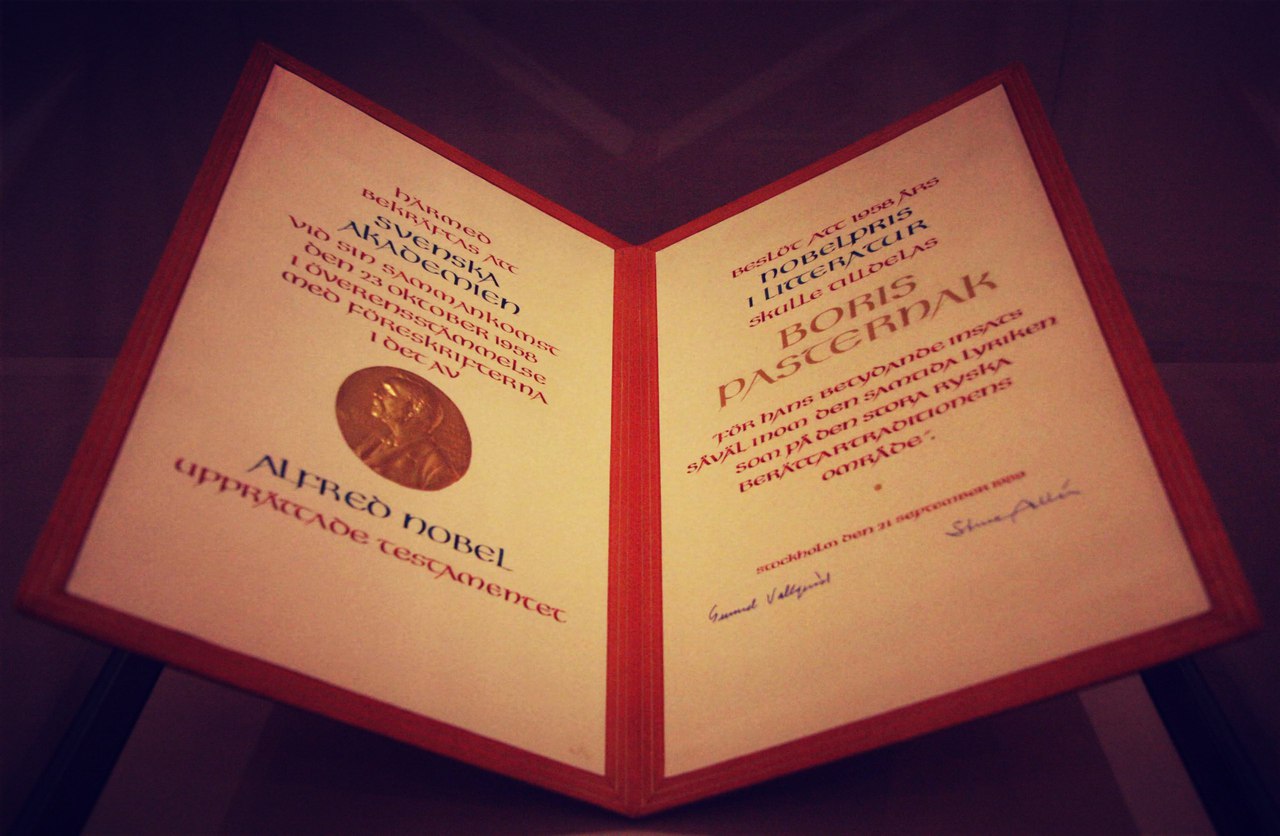 HÄRMED
BEKRÄFTAS ATT
SVENSKA
AKADEMIEN
VID SIN SAMMANKOMST
DEN 23 OKTOBER 1958
I ÖVERENSSTÄMMELSE
MED FÖRESKRIFTERNA
I DET AV
ALFRED NOBEL
UPPRÄTTADE TESTAMENTET
BESLÖT ATT 1958 ÅRS
NOBELPRIS
I LITTERATUR
SKULLE TILLDELAS
BORIS
PASTERNAK
"FÖR HANS BETYDANDE INSATS
SÅVÄL INOM DEN SAMTIDA LYRIKEN
SOM PÅ DEN STORA RYSKA
BERÄTTARTRADITIONENS
OMRÅDE".
STOCKHOLM DEN 21 SEPTEMBER 1989
Sture Allén
Gunnel Vallquist